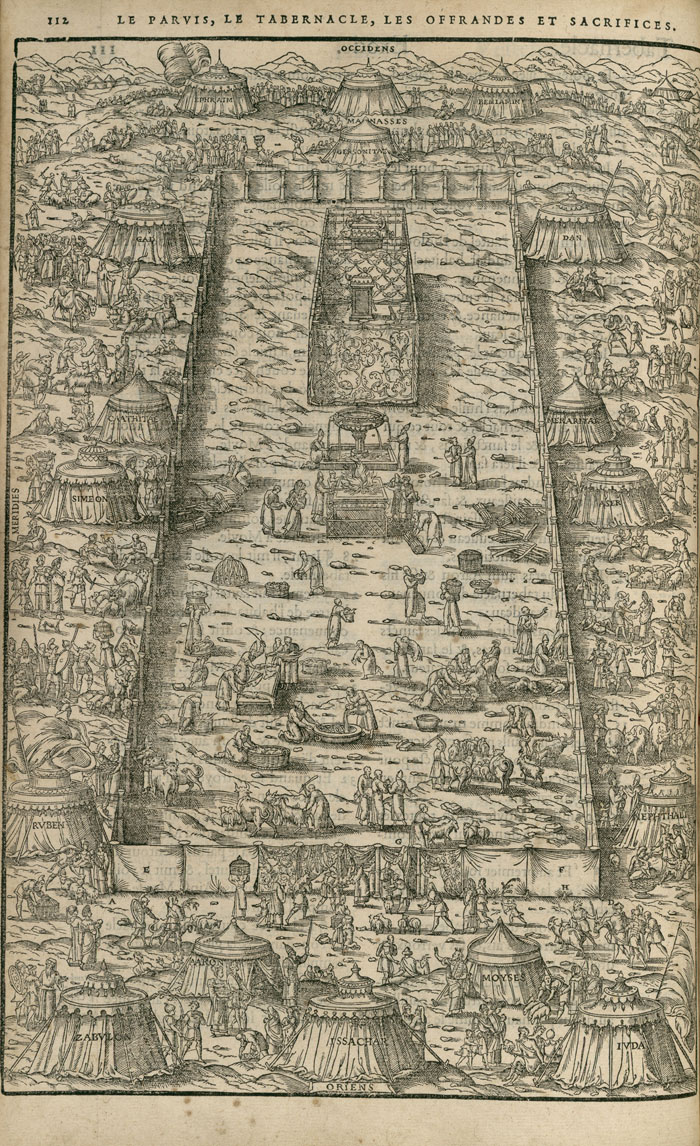 112 LE PARVIS, LE TABERNACLE, LES OFFRANDES ET SACRIFICES.
OCCIDENS
EPHRAIM
BENIAMIN
MANASSES
GERSONITAE
GAD
DAN
CAATHITAE
MERARITAE
SIMEON
ASER
MERIDIES
RVBEN
NEPHTHALI
G
E
F
H
A
D
ARO
MOYSES
ZABVLON
ISSACHAR
IVDA
ORIENS